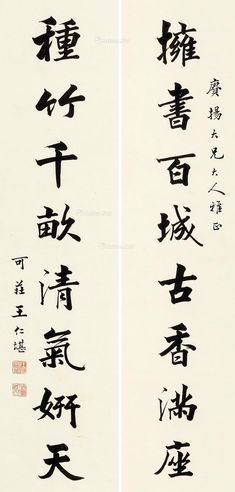 賡揚大兄大人雅正
擁書百城古香滿座
種竹千畝清氣姸天
可莊王仁堪